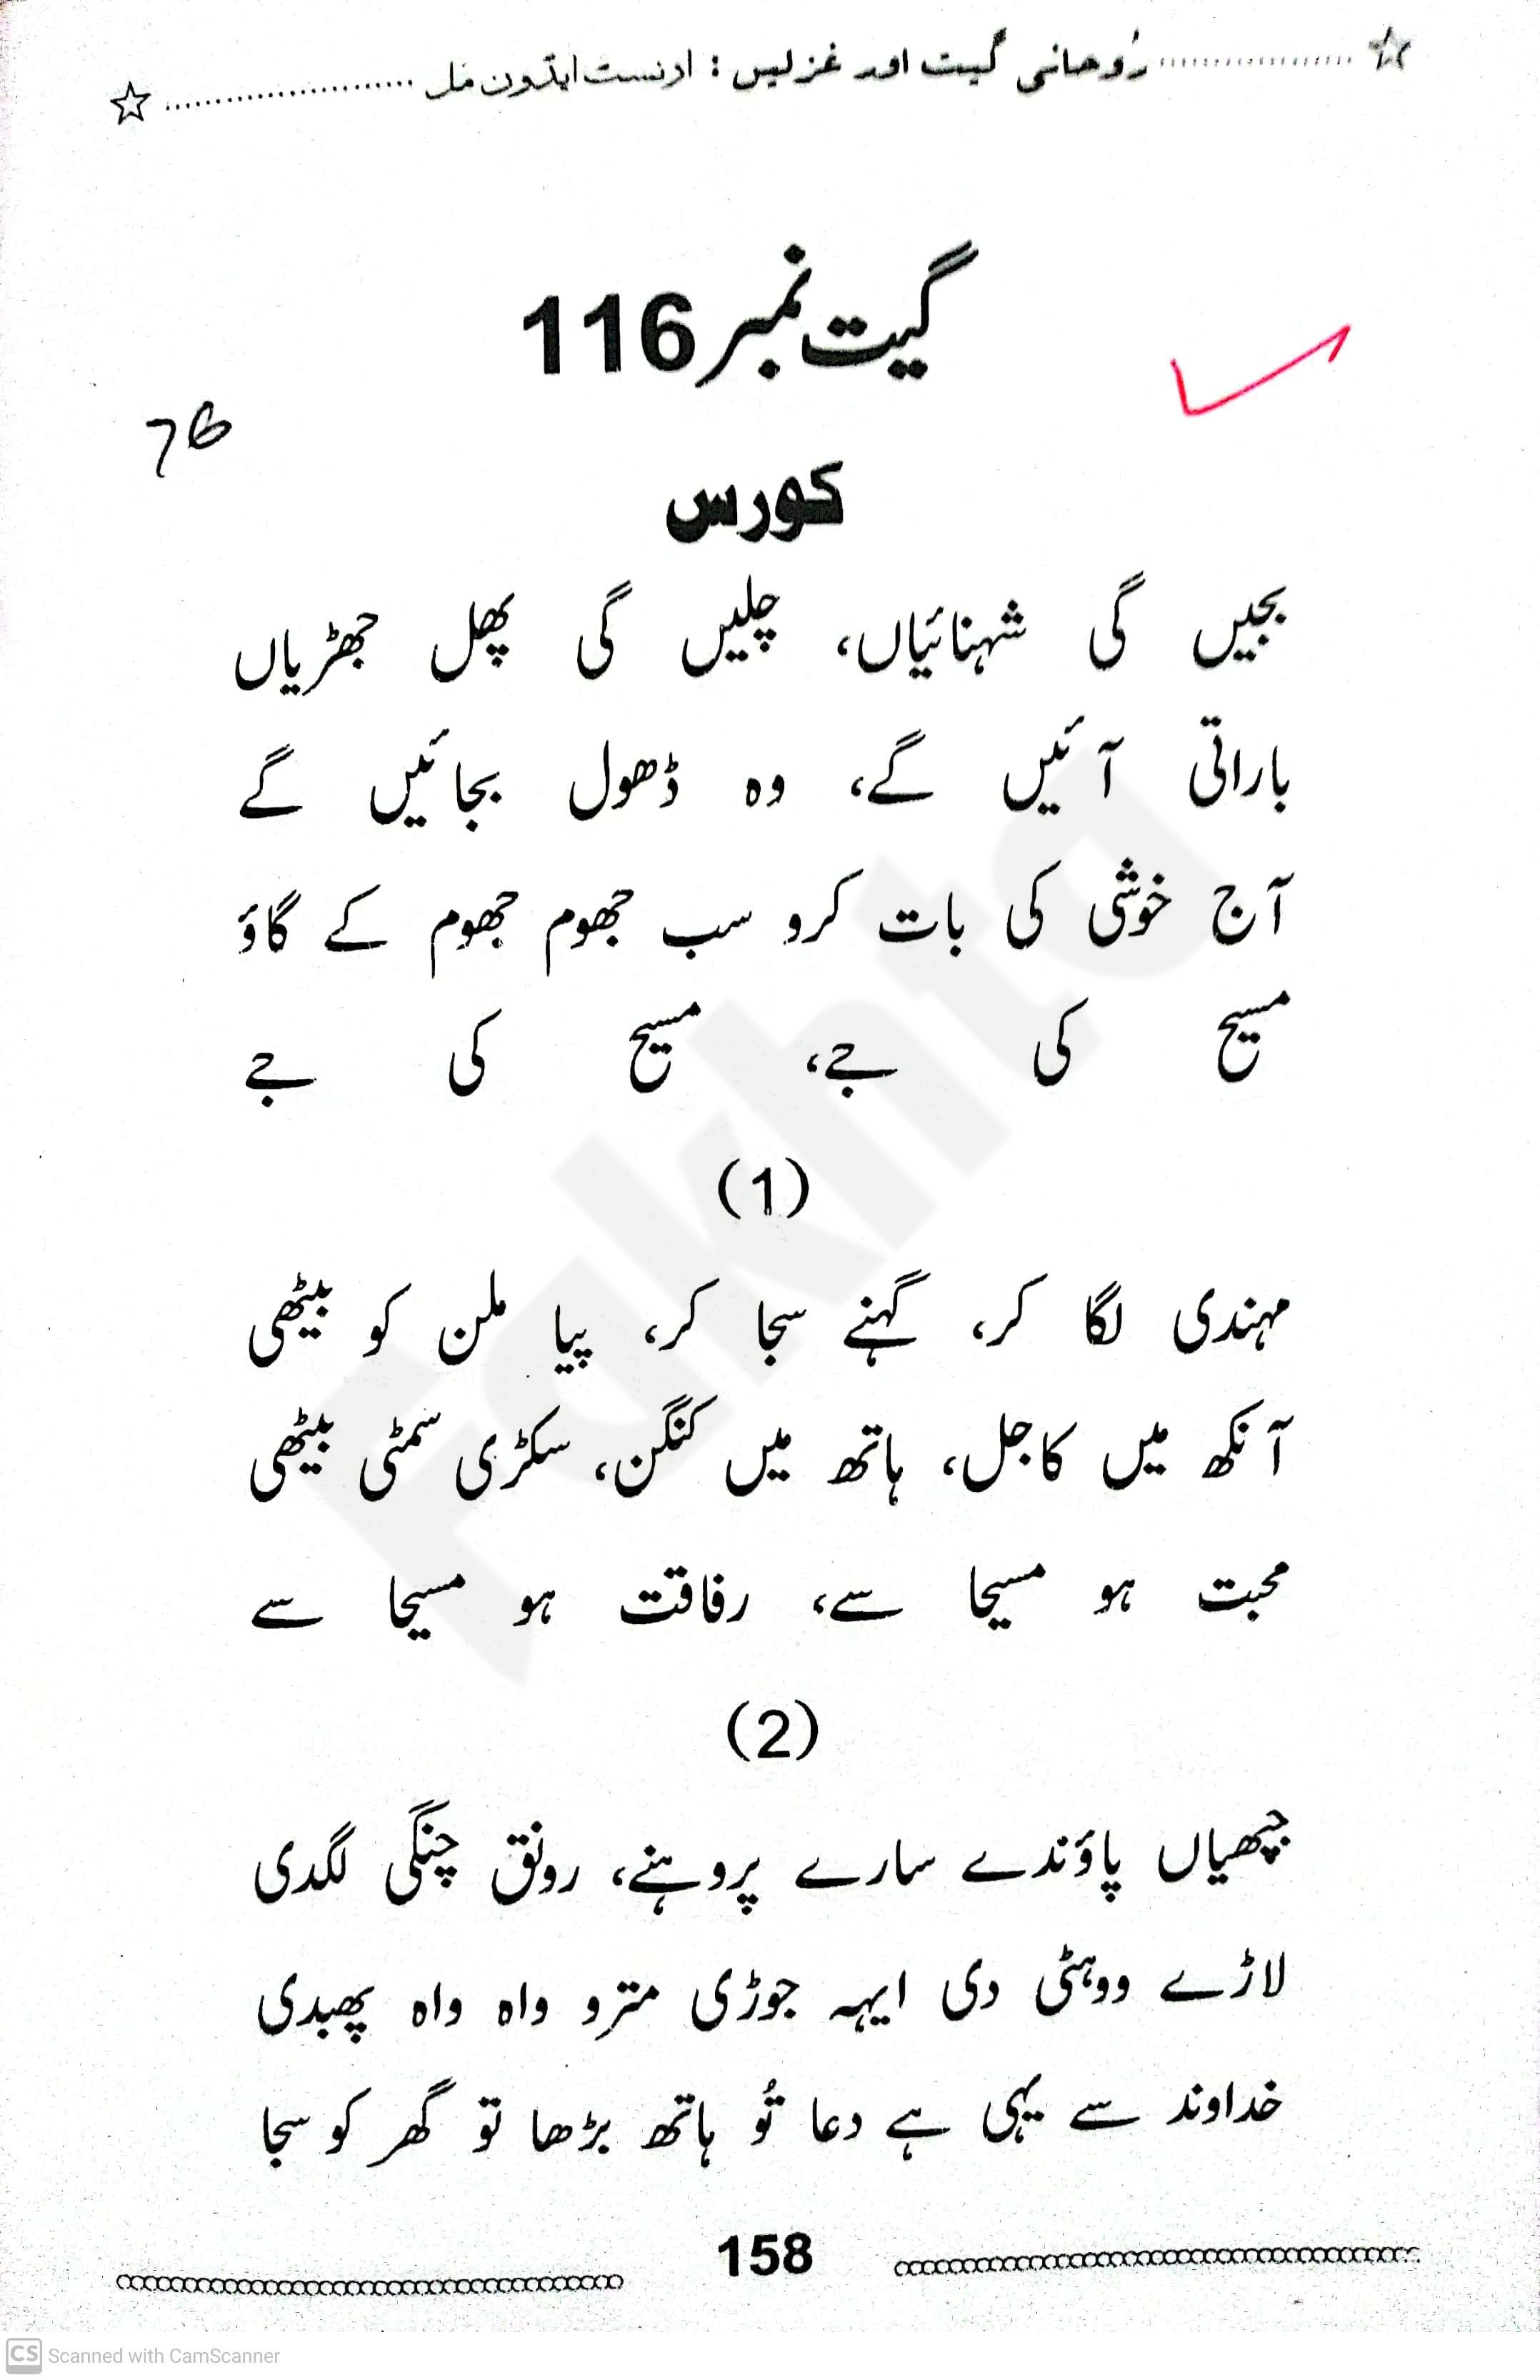 رُوحانی گیت اور غزلیں : ارنسٹ ایڈون مل
گیت نمبر 116
76
کورس
بجیں گی شہنائیاں، چلیں گی پھل جھڑیاں
باراتی آئیں گے، وہ ڈھول بجائیں گے
آج خوشی کی بات کرو سب جھوم جھوم کے گاؤ
مسیح کی جے، مسیح کی جے
(1)
مہندی لگا کر، گہنے سجا کر، پیا ملن کو بیٹھی
آنکھ میں کاجل، ہاتھ میں کنگن، سکڑی سمٹی بیٹھی
محبت ہو مسیحا سے، رفاقت ہو مسیحا سے
(2)
جپھیاں پاؤندے سارے پروہنے، رونق چنگی لگدی
لاڑے ووہٹی دی ایہہ جوڑی مترو واہ واہ پھبدی
خداوند سے یہی ہے دعا تُو ہاتھ بڑھا تو گھر کو سجا
158
Fakhta
CS Scanned with CamScanner